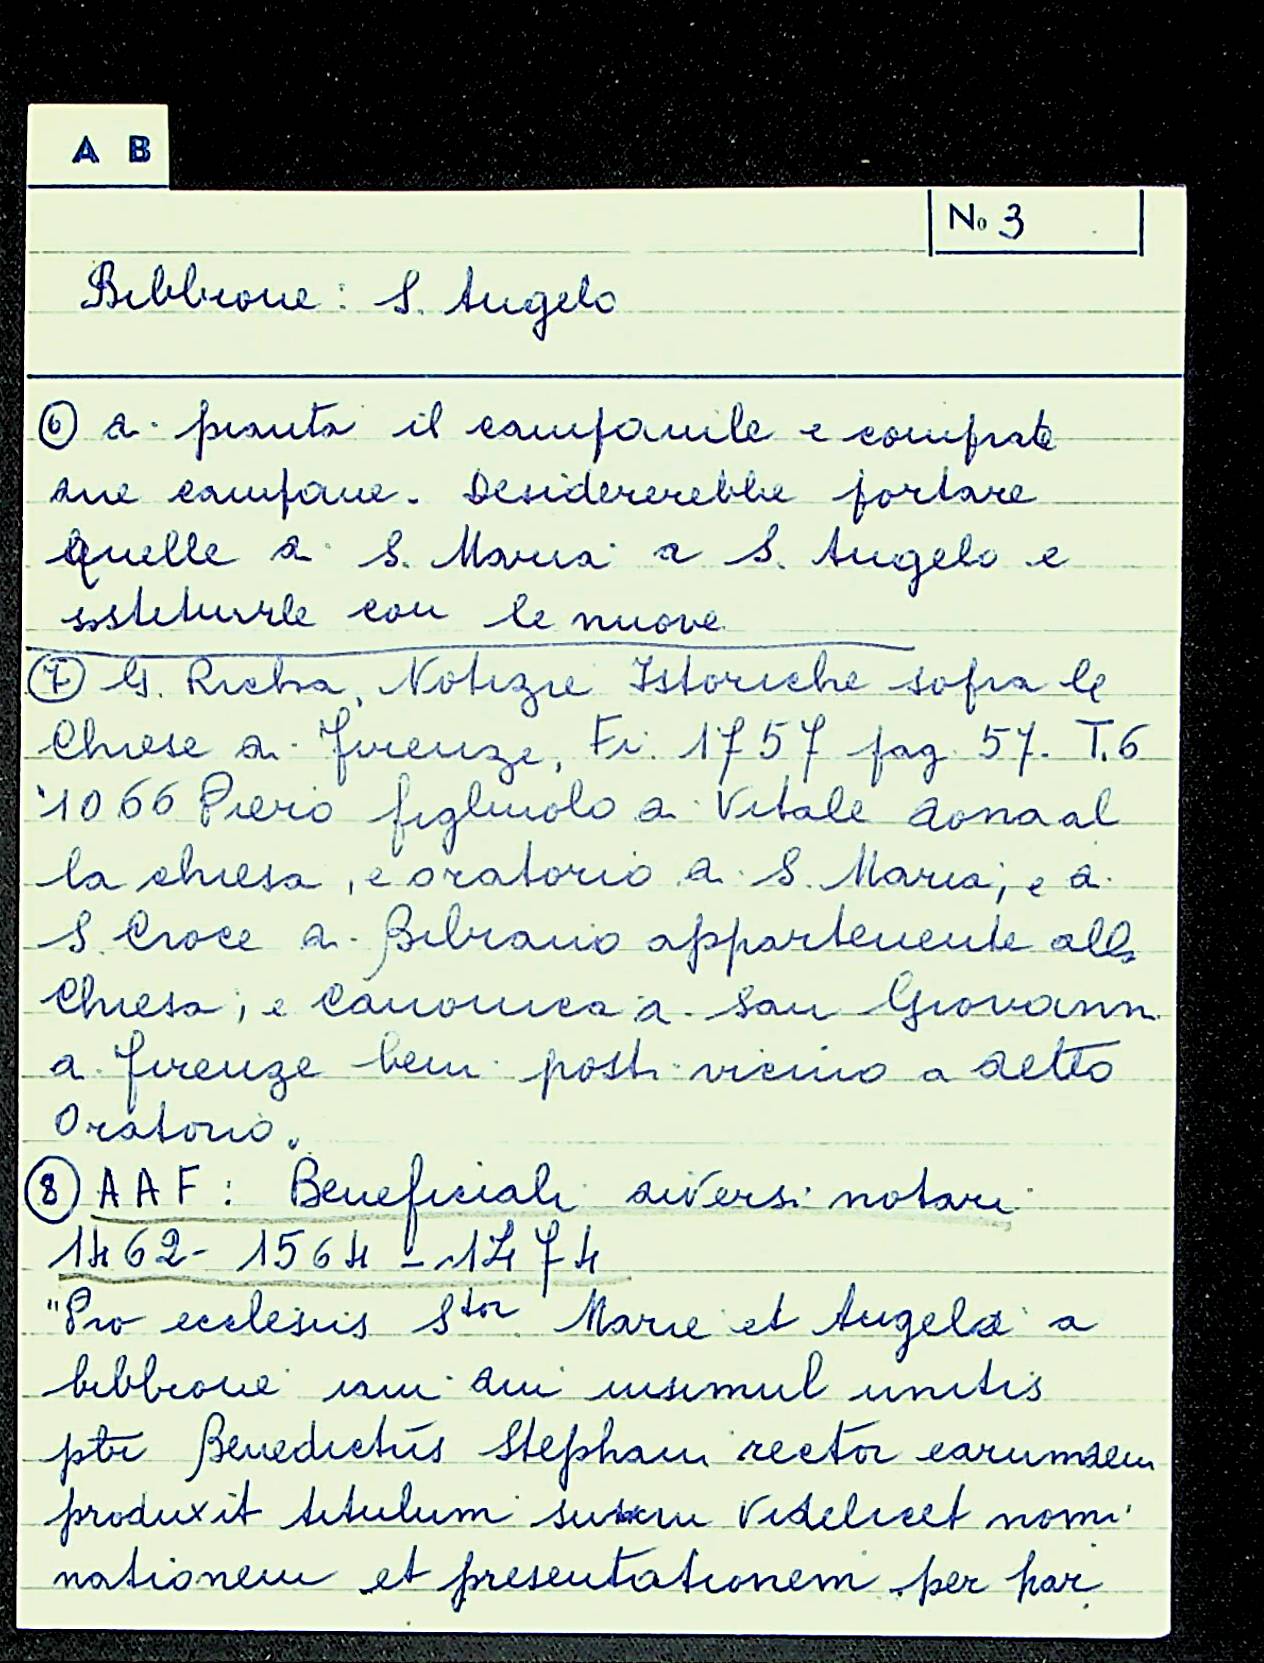 A B
No 3
Bibbione: S. Angelo
6 di pianta il campanile e comprate
due campane. Desidererebbe portare
quelle di S. Maria a S. Angelo e
sostituirle con le nuove
7 G. Richa, Notizie Istoriche sopra le
Chiese di Firenze, Fi. 1757 pag. 57. T.6
1066 Piero figliuolo di Vitale dona al
la chiesa, e oratorio di S. Maria; e di
S. Croce di Bibiano appartenente alla
Chiesa; e Canonica di San Giovanni
di Firenze beni posti vicino a detto
Oratorio.
8 AAF: Beneficiali diversi notari
1462- 1564 - 1474
"Pro ecclesiis Stor Marie et Angeli a
bibbione iam diu insimul unitis
ptr Benedictus Stephani rector earumdem
produxit titulum suum videlicet nomi
nationem et presentationem per par